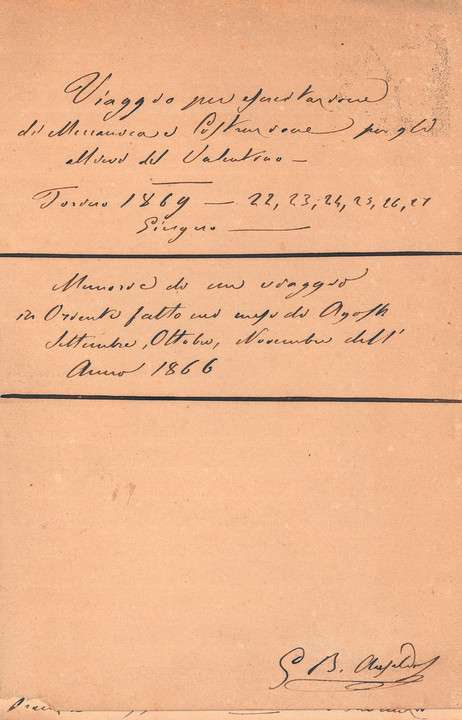 Viaggio per esercitazione
di Meccanica e Costruzione per gli
allievi del Valentino —
Torino 1869 — 22, 23, 24, 25, 26, 27
Giugno —
Memorie di un viaggio
in Oriente fatto nei mesi di Agosto
Settembre, Ottobre, Novembre dell'
Anno 1866
G B. Ansaldo